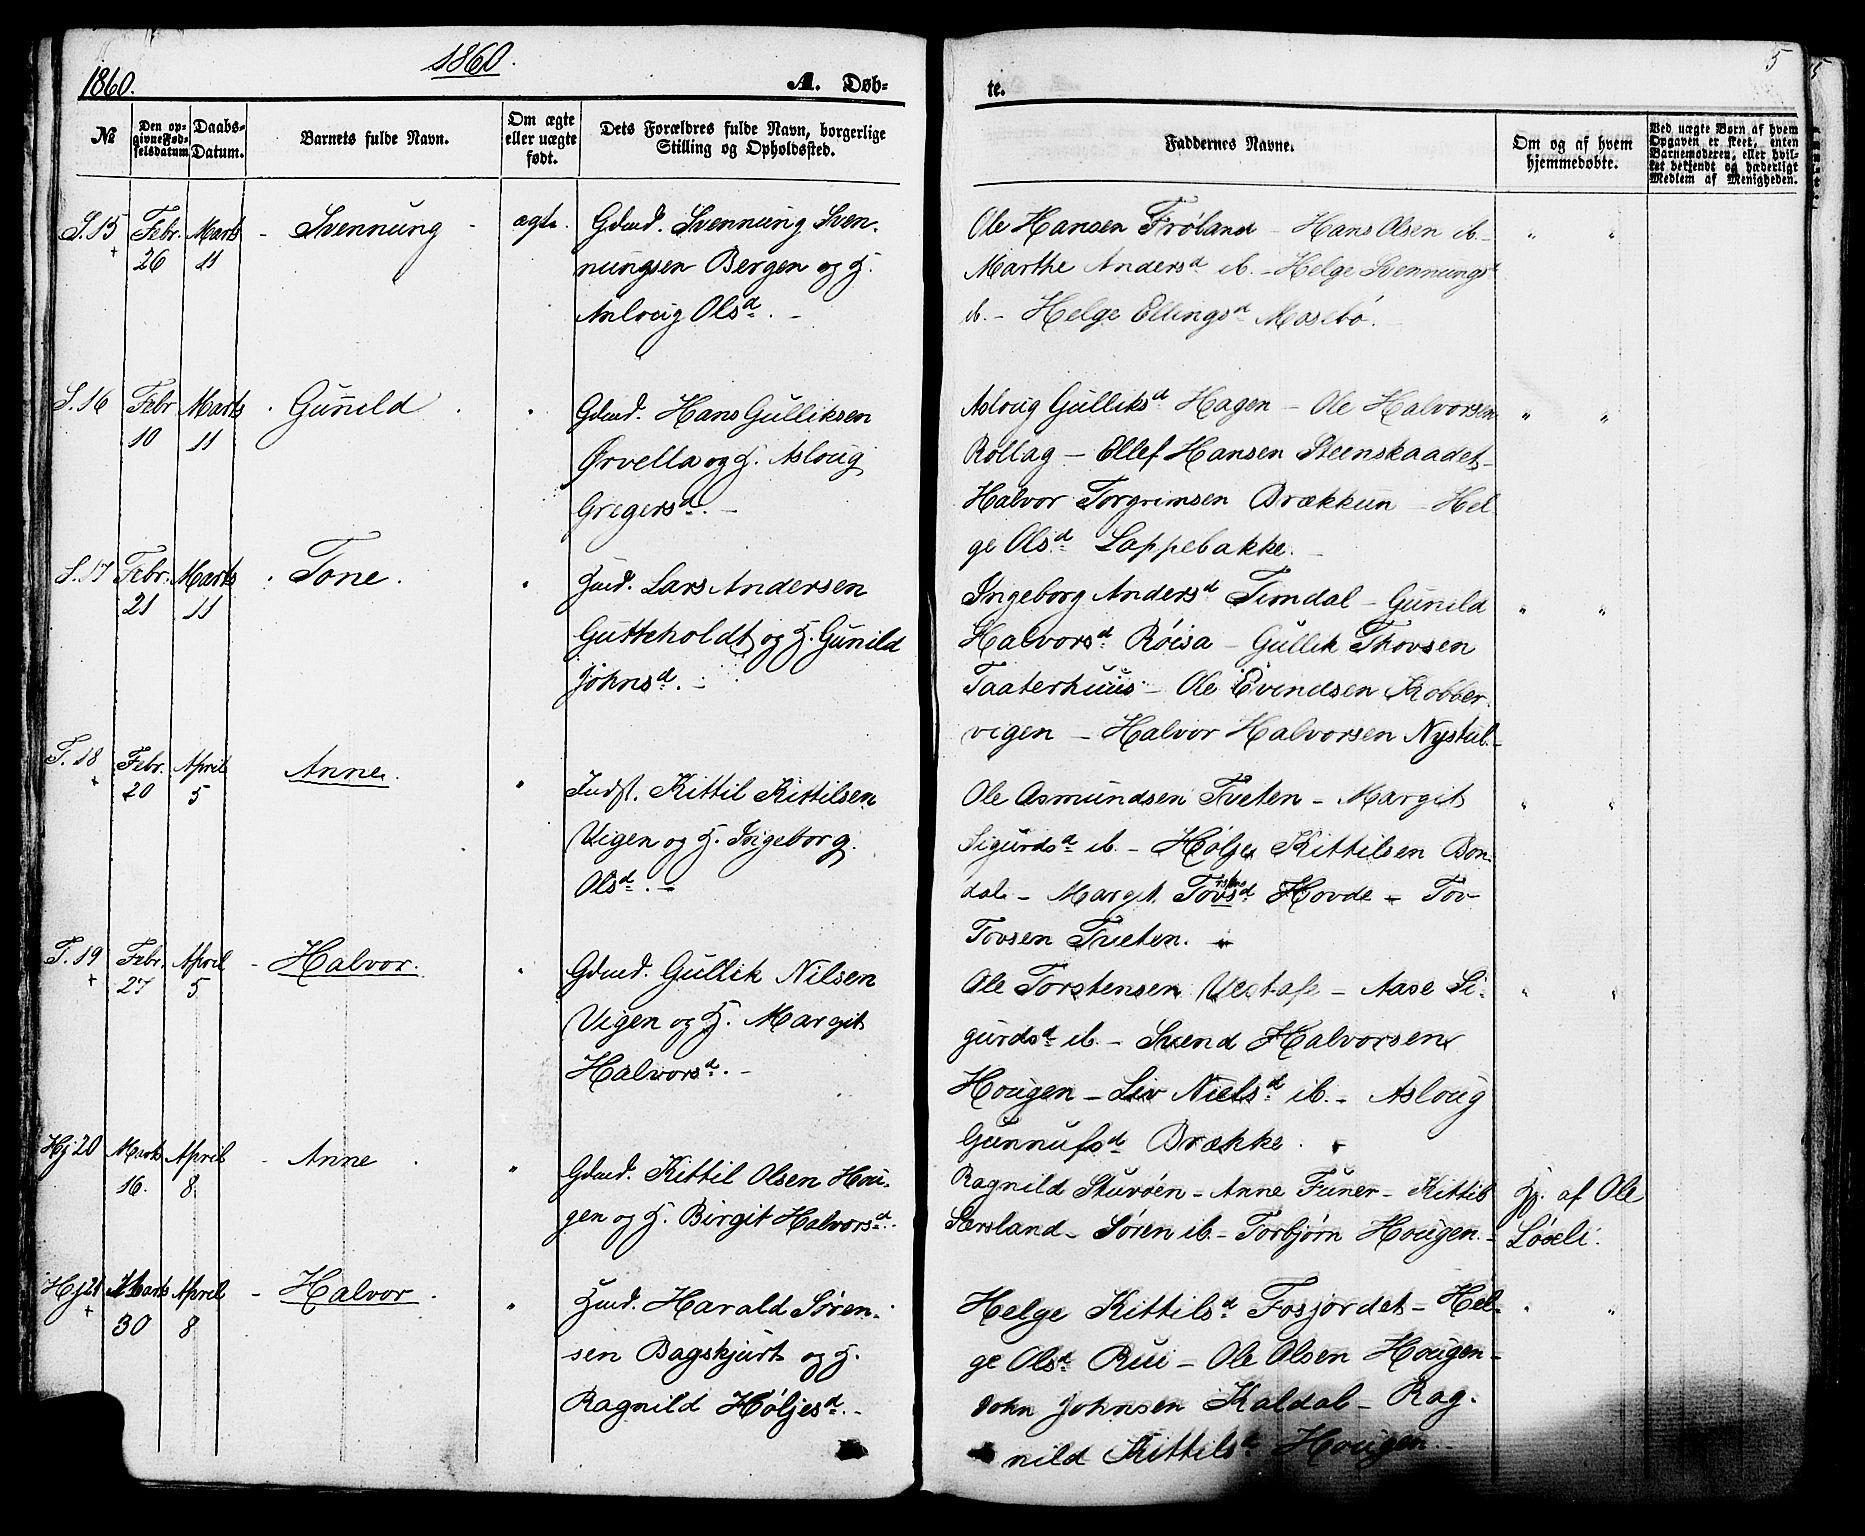 1860.
1860.
A. Døb-
te.
5
№
Den op-
givne Fød-
selsdatum.
Daabs-
Datum.
Barnets fulde Navn.
Om ægte
eller uægte
født.
Dets Forældres fulde Navn, borgerlige
Stilling og Opholdssted.
Faddernes Navne.
Om og af hvem
hjemmedøbte.
Ved uægte Børn af hvem
Opgaven er skeet, enten
Barnemoderen, eller hvil-
ket bekjendt og hæderligt
Medlem af Menigheden.
S. 15 Febr. Marts - Svennung - ægte. Gdmd. Svennung Sven-
+ 26 11
nungsen Bergen og H.
Anloug Olsd. -
Ole Hansen Frøland - Hans Olsen ib. - " "
Marthe Andersd ib. - Helge Svennungsd
ib. - Helge Ellingsd Mosebø. -
S. 16 Febr Marts . Gunild . " Gdmd. Hans Gulliksen
10 11
Ørvella og H. Asloug
Gregersd. -
Asloug Gulliksd Hagen - Ole Halvorsen " "
Rollag - Ellef Hansen Steenskaadet -
Halvor Torgrimsen Brækkun - Hel
ge Olsd Lappebakke. -
S. 17 Febr. Marts . Tone. " Hmd. Lars Andersen
21 11
Gutteholdt og H. Gunild
Johnsd. -
Ingeborg Andersd Timdal - Gunild " "
Halvorsd Röisa - Gullik Thovsen
Taaterhuus - Ole Evindsen Kobber-
vigen - Halvor Halvorsen Nystul. -
T. 18 Febr. April Anne. " Indst. Kittil Kittilsen
+ 20 5
Vigen og H. Ingeborg
Olsd. -
Ole Asmundsen Tveten - Margit " "
Sigurdsd ib. - Hølje Kittilsen Bon-
dal - Margit Tovsd Hovde - Tov
Tovsen Tveten. -
T. 19 Febr. April - Halvor. " Gdmd. Gullik Nilsen
+ 27 5
Vigen og H. Margit
Halvorsd. -
Ole Torstensen Vestafe - Aase Si- " "
gurdsd ib. - Svend Halvorsen
Hougen - Liv Nielsd ib. - Asloug
Gunnufsd Brække. -
Hj 20 Marts April - Anne . " Gdmd. Kittil Olsen Hou-
16. 8
gen og H. Birgit Halvorsd. -
Ragnild Stuvöen - Anne Funer - Kittil Hj. af Ole
Særsland - Søren ib. - Torbjørn Hougen. - Løseli.
Hj 21 Marts April - Halvor . " Hmd. Harald Søren-
+ 30 8
sen Bagskjurt og H.
Ragnild Høljesd. -
Helge Kittilsd Fosjordet - Hel- " "
ge Olsd Rui - Ole Olsen Hougen -
John Johnsen Kaldal - Rag-
nild Kittilsd Hougen. -